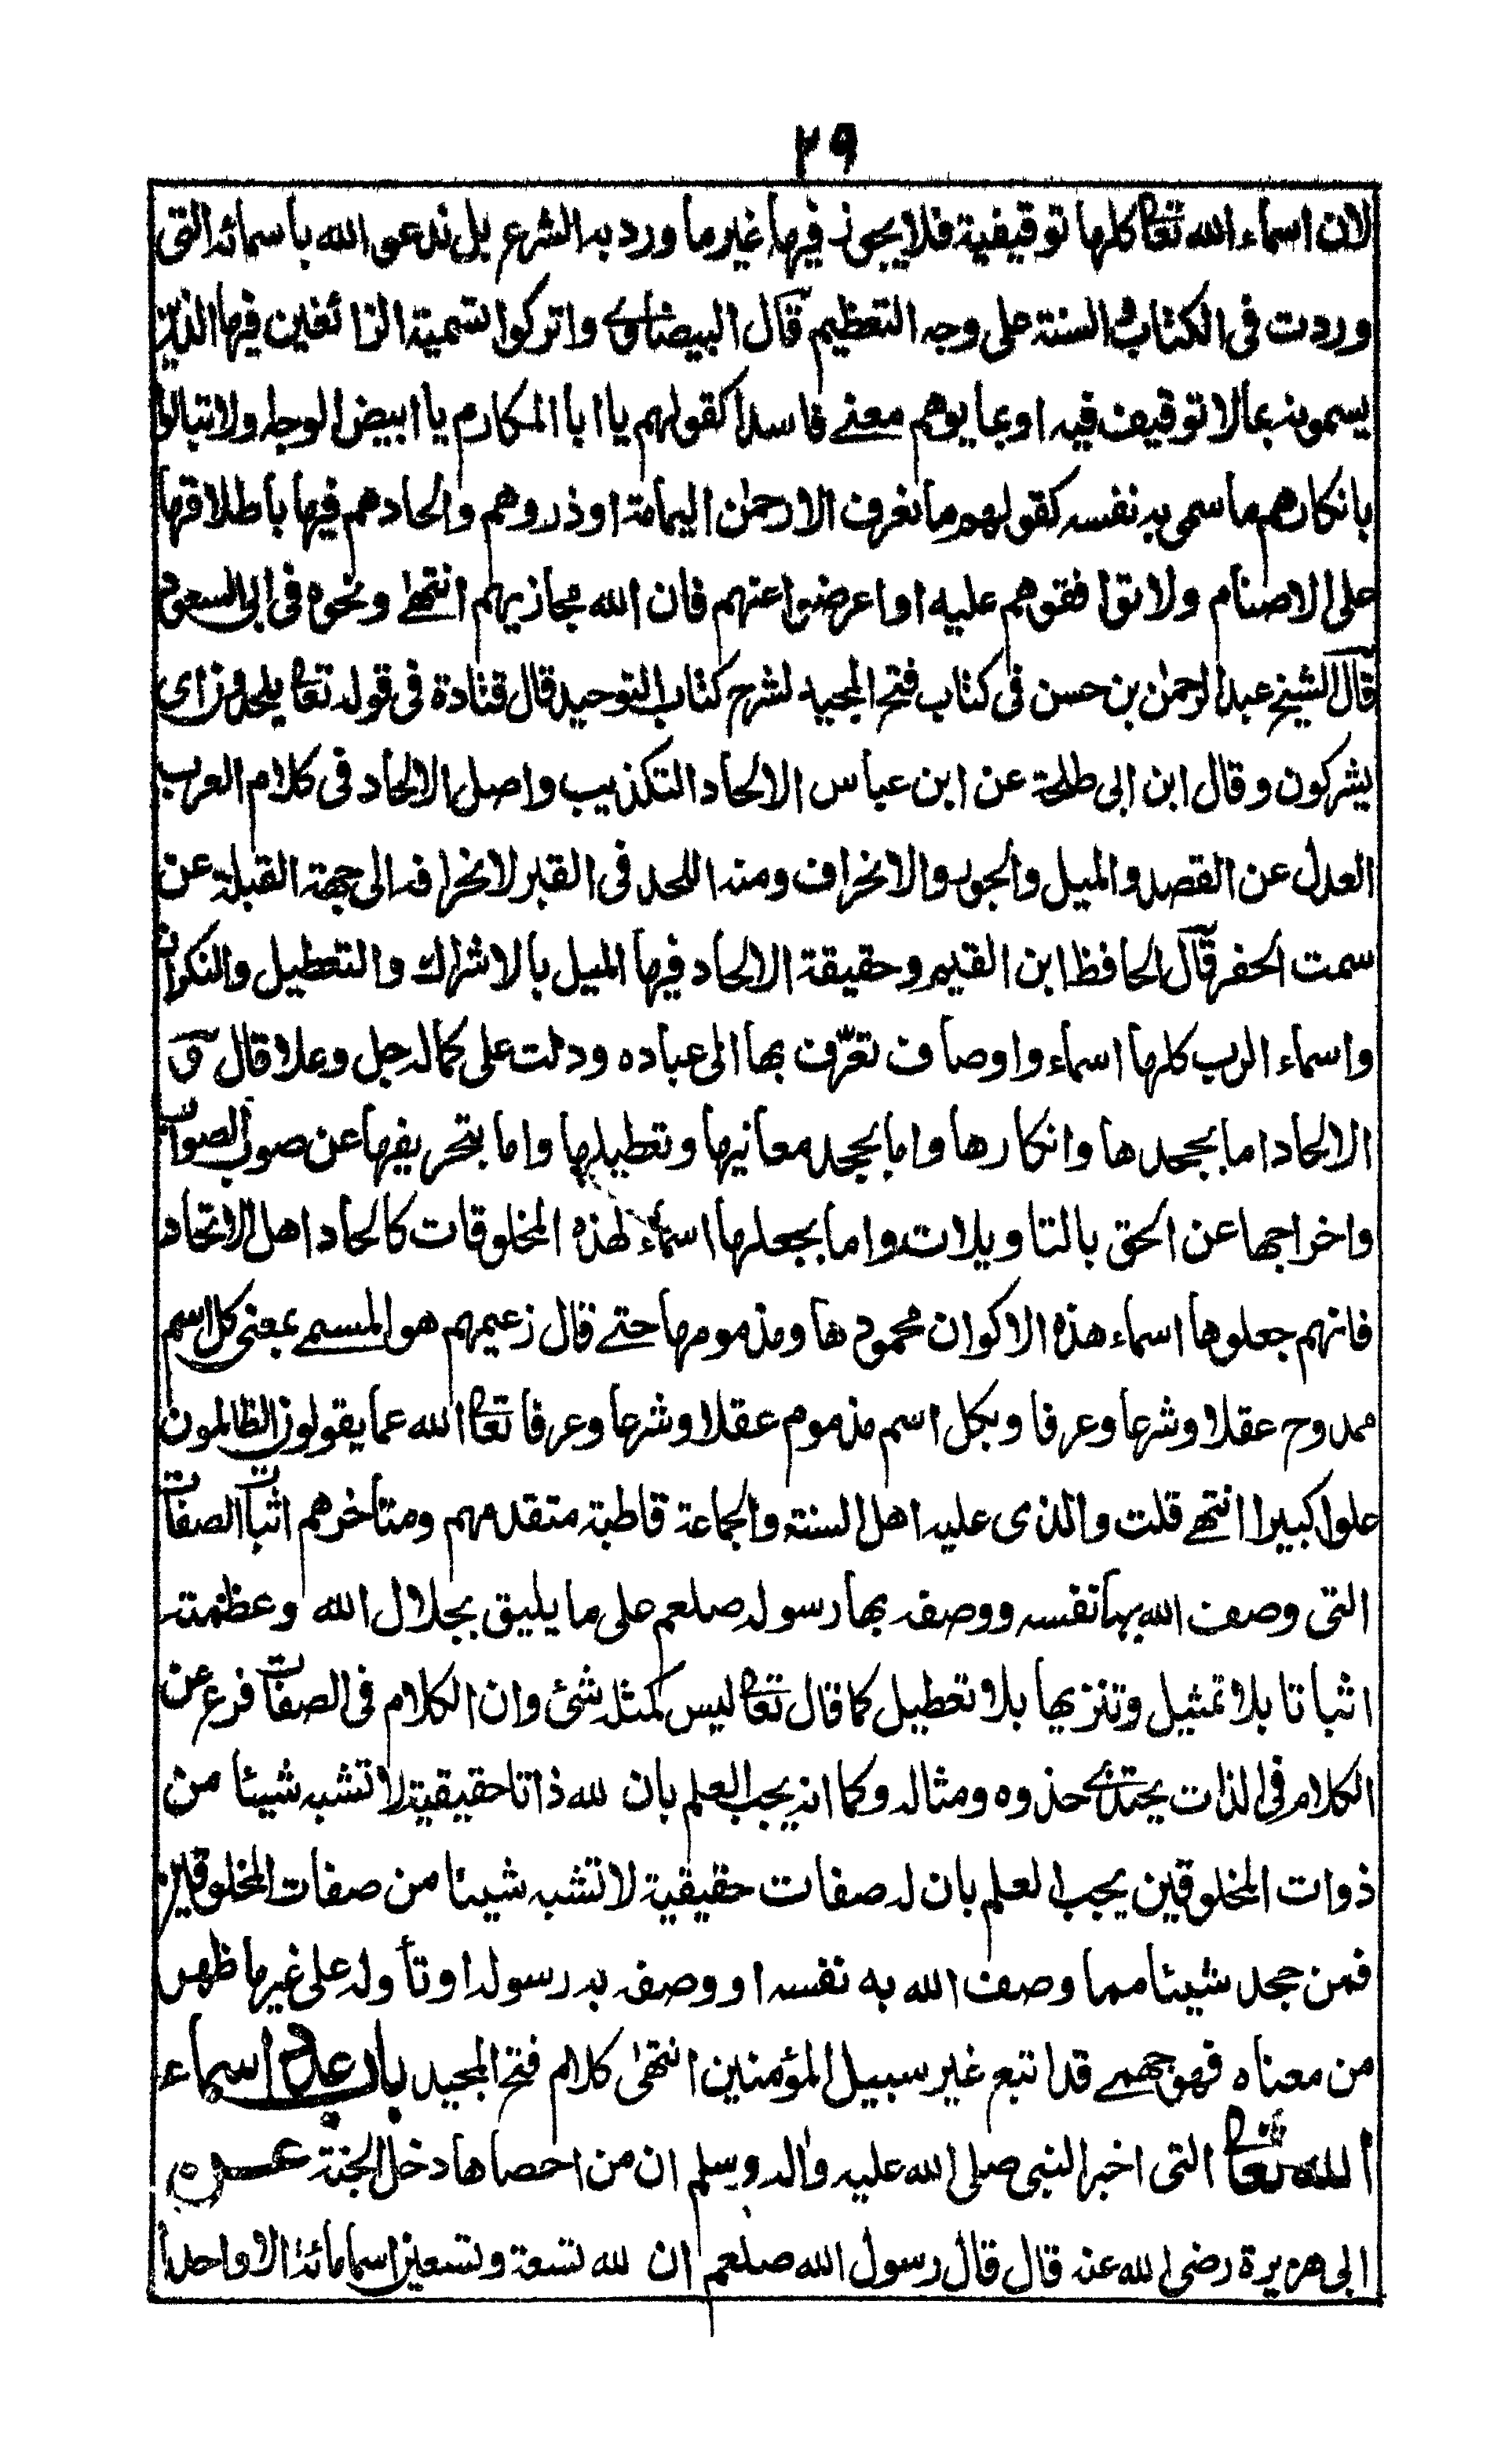 ٢٩
لان اسماء الله تعا كلها توقيفية فلا يجوز فيها غير ما ورد به الشرع بل ندعو الله باسمائه التي
وردت في الكتاب والسنة على وجه التعظيم قال البيضاوي واتركوا تسمية الزائغين فيها الذين
يسمونه بما لا توقيف فيه او بما يوهم معنى فاسدا كقولهم يا ابا المكارم يا ابيض الوجه ولا تبالوا
بانكارهم ما سمى به نفسه كقولهم ما نعرف الا رحمن اليمامة او ذروهم والحادهم فيها باطلاقها
على الاصنام ولا توافقوهم عليه او اعرضوا عنهم فان الله مجازيهم انتهى ونحوه في ابي السعود
قال الشيخ عبد الرحمن بن حسن في كتاب فتح المجيد لشرح كتاب التوحيد قال قتادة في قوله تعا يلحدون اى
يشركون وقال ابن ابي طلحة عن ابن عباس الالحاد التكذيب واصل الالحاد في كلام العرب
العدل عن القصد والميل والجور والانحراف ومنه اللحد في القبر لانحرافه الى جهة القبلة عن
سمت الحفر قال الحافظ ابن القيم وحقيقة الالحاد فيها الميل بالاشراك والتعطيل والنكران
واسماء الرب كلها اسماء واوصاف تعرّف بها الى عباده ودلت على كماله جل وعلا قال و
الالحاد اما بجحدها وانكارها واما بجحد معانيها وتعطيلها واما بتحريفها عن صوب الصواب
واخراجها عن الحق بالتاويلات واما بجعلها اسماء لهذه المخلوقات كالحاد اهل الاتحاد
فانهم جعلوها اسماء هذه الاكوان محمودها ومذمومها حتى قال زعيمهم هو المسمى بمعنى كل اسم
ممدوح عقلا وشرعا وعرفا وبكل اسم مذموم عقلا وشرعا وعرفا تعا الله عما يقولون الظالمون
علوا كبيرا انتهى قلت والذى عليه اهل السنة والجماعة قاطبة متقدمهم ومتاخرهم اثبات الصفات
التى وصف الله بها نفسه ووصفه بها رسوله صلعم على ما يليق بجلال الله وعظمته
اثباتا بلا تمثيل وتنزيها بلا تعطيل كما قال تعا ليس كمثله شئ وان الكلام في الصفات فرع عن
الكلام في الذات يحتذى حذوه ومثاله وكما انه يجب العلم بان لله ذاتا حقيقية لا تشبه شيئا من
ذوات المخلوقين يجب العلم بان له صفات حقيقية لا تشبه شيئا من صفات المخلوقين
فمن جحد شيئا مما وصف الله به نفسه او وصفه به رسوله او تأوله على غير ما ظهر
من معناه فهو جهمى قد اتبع غير سبيل المؤمنين انتهى كلام فتح المجيد باب عدّ اسماء
الله تعا التى اخبر النبي صلى الله عليه وآله وسلم ان من احصاها دخل الجنة عن
ابي هريرة رضى الله عنه قال قال رسول الله صلعم ان لله تسعة وتسعين اسما مائة الا واحدا